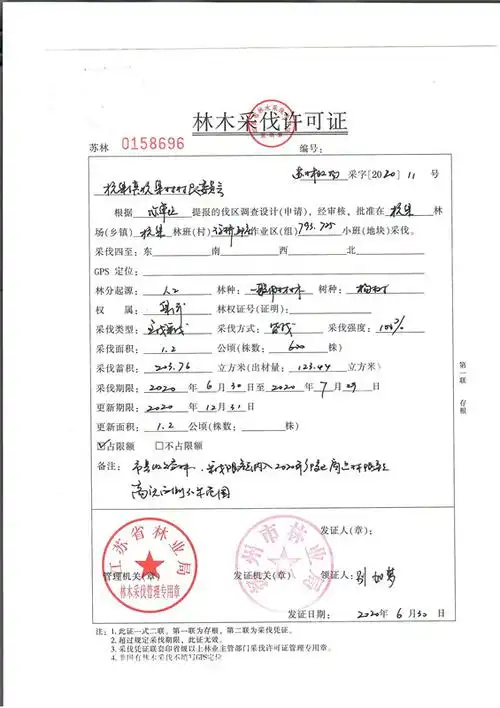 林木采伐许可证
苏林 0158696 编号：
采字[2020] 11 号
根据 提报的伐区调查设计(申请)，经审核，批准在 杭集 林
场(乡镇) 杭集 林班(村) 作业区(组) 793.725 小班(地块)采伐。
采伐四至：东 南 西 北
GPS 定位：
林分起源：人工 林种：一般用材林 树种：杨树
权 属：集体 林权证号(证明)：
采伐类型： 采伐方式：皆伐 采伐强度：100%
采伐面积：1.2 公顷(株数：600 株)
采伐蓄积：203.76 立方米(出材量：123.44 立方米)
采伐期限：2020 年 6 月 30 日至 2020 年 7 月 29 日
更新期限：2020 年 12 月 31 日
更新面积：1.2 公顷(株数： 株)
☑占限额 □不占限额
备注：
第一联 存根
江苏省林业局
林木采伐管理专用章
州市林业局
发证人(章)：
管理机关(章) 发证机关(章) 领证人：
发证日期：2020 年 6 月 30 日
注：1. 此证一式二联。第一联为存根，第二联为采伐凭证。
2. 超过规定采伐期限，此证无效。
3. 采伐凭证联套印省级以上林业主管部门采伐许可证管理专用章。
4. 非国有林木采伐不填写GPS定位